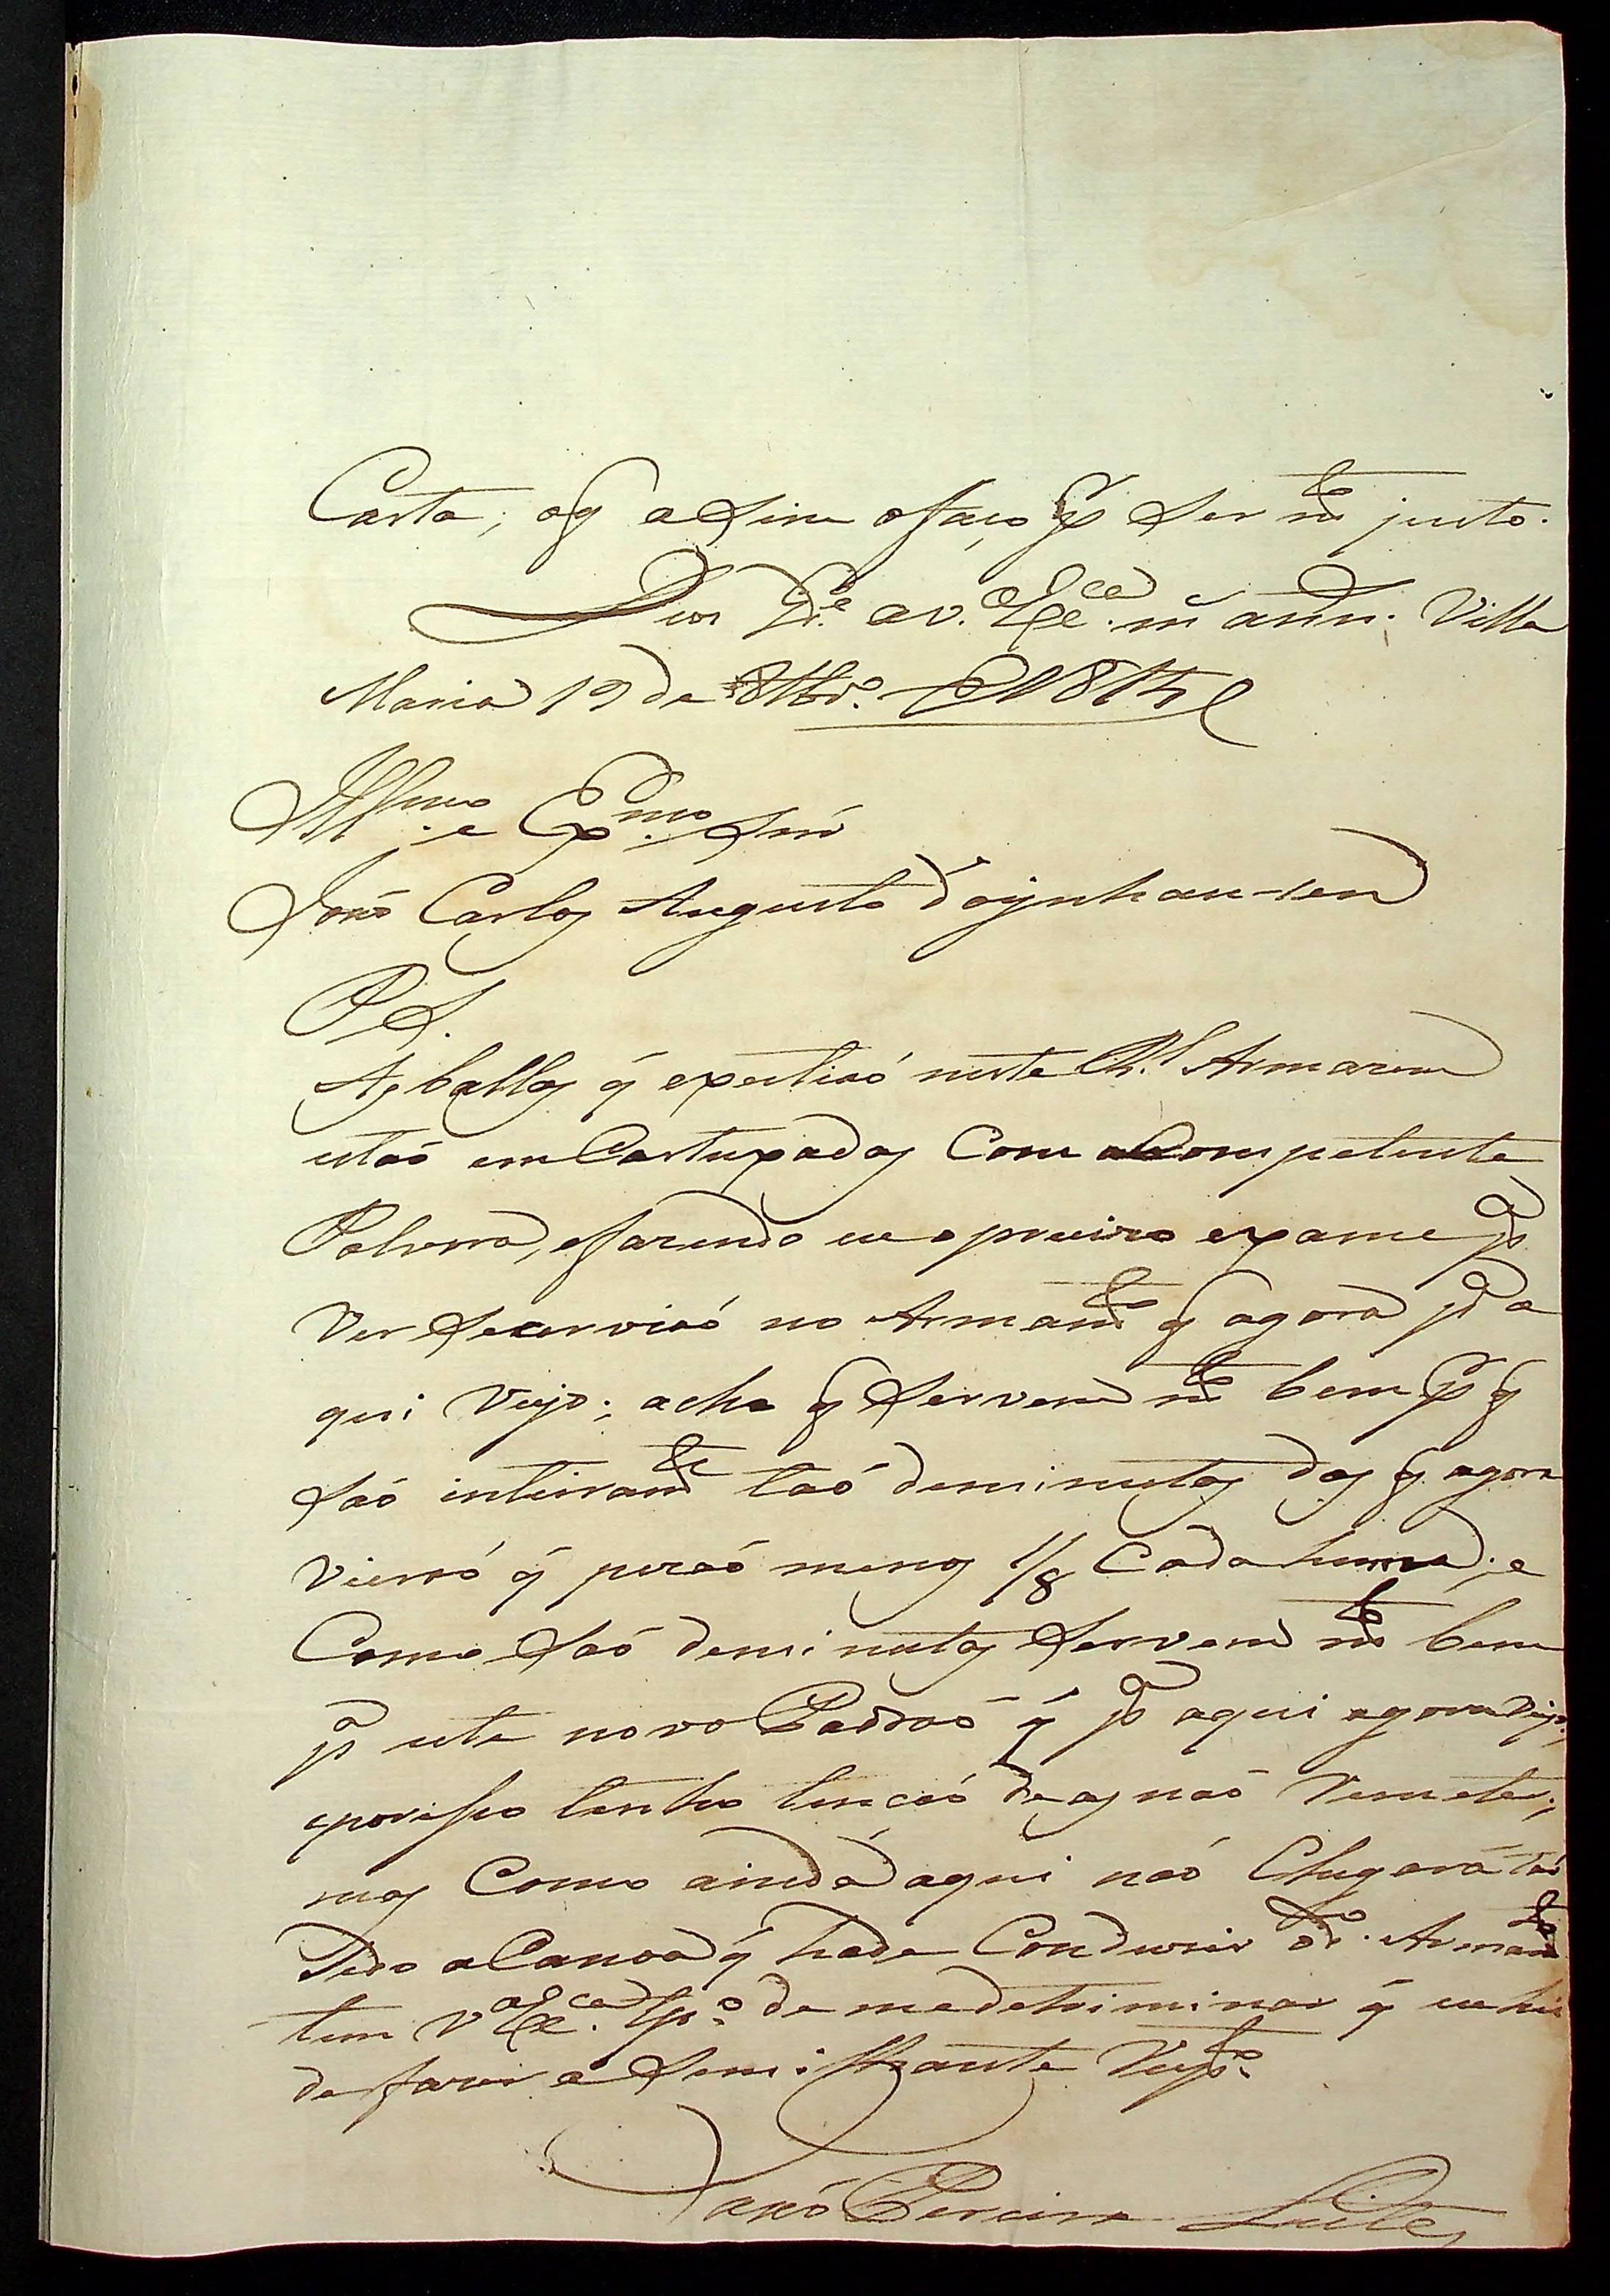 Carta, oq̃ aSim ofaço p.r Ser m.to justo.
Deos G.e a V. Ex.ca m.s ann.s Villa
Maria 19 de 8tbr.o 1815
Ill.mo e Ex.mo Snr'
João Carlos Augusto d'oýnhau-sen
P.S.
As ballas q̃ expestiraó nesta R.l Armazem
estaó emCartuxadas Com aCompetente
Polvora, efazendo eu opreciso exzame p.a
Ver Seserviaó no Armam.to q̃ agora p.a a
qui Veyo; acho q̃ Servem m.to bem p.r q̃
Saó inteiram.te taó deminutas das q̃ agora
vieraó q̃ pezaó menos 1/8 Cada huma; e
Como Saó deminutas Servem m.to bem
p.a este novo Padraó q̃ p.a aqui agora Veyo,
eporisso tenho tençaó de as naó Remeter;
mas Como ainda daqui naó Chegará taó
Sedo aCanoa q̃ hade Conduzir o d.o Armam.to
tem V. Ex.ca tp.o de medetriminar q̃ eu hei
defazer a Semilhante Resp.to
Joaó Pereira Leite